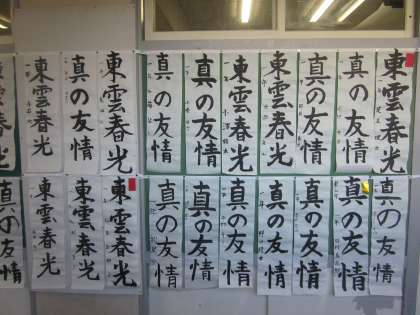 東雲春光
東雲春光
真の友情
東雲春光
真の友情
真の友情
東雲春光
東雲春光
真の友情
真の友情
東雲春光
真の友情
東雲春光
東雲春光
東雲春光
真の友情
真の友情
真の友情
真の友情
真の友情
真の友情
真の友情